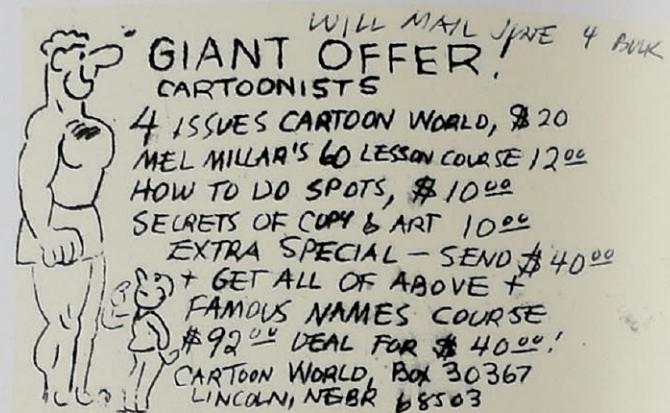 WILL MAIL JUNE 4 BULK
GIANT OFFER!
CARTOONISTS
4 ISSUES CARTOON WORLD, $20
MEL MILLAR'S 60 LESSON COURSE 12⁰⁰
HOW TO DO SPOTS, $10⁰⁰
SECRETS OF COPY & ART 10⁰⁰
EXTRA SPECIAL — SEND $40⁰⁰
+ GET ALL OF ABOVE +
FAMOUS NAMES COURSE
$92⁰⁰ DEAL FOR $40⁰⁰!
CARTOON WORLD, BOX 30367
LINCOLN, NEBR 68503